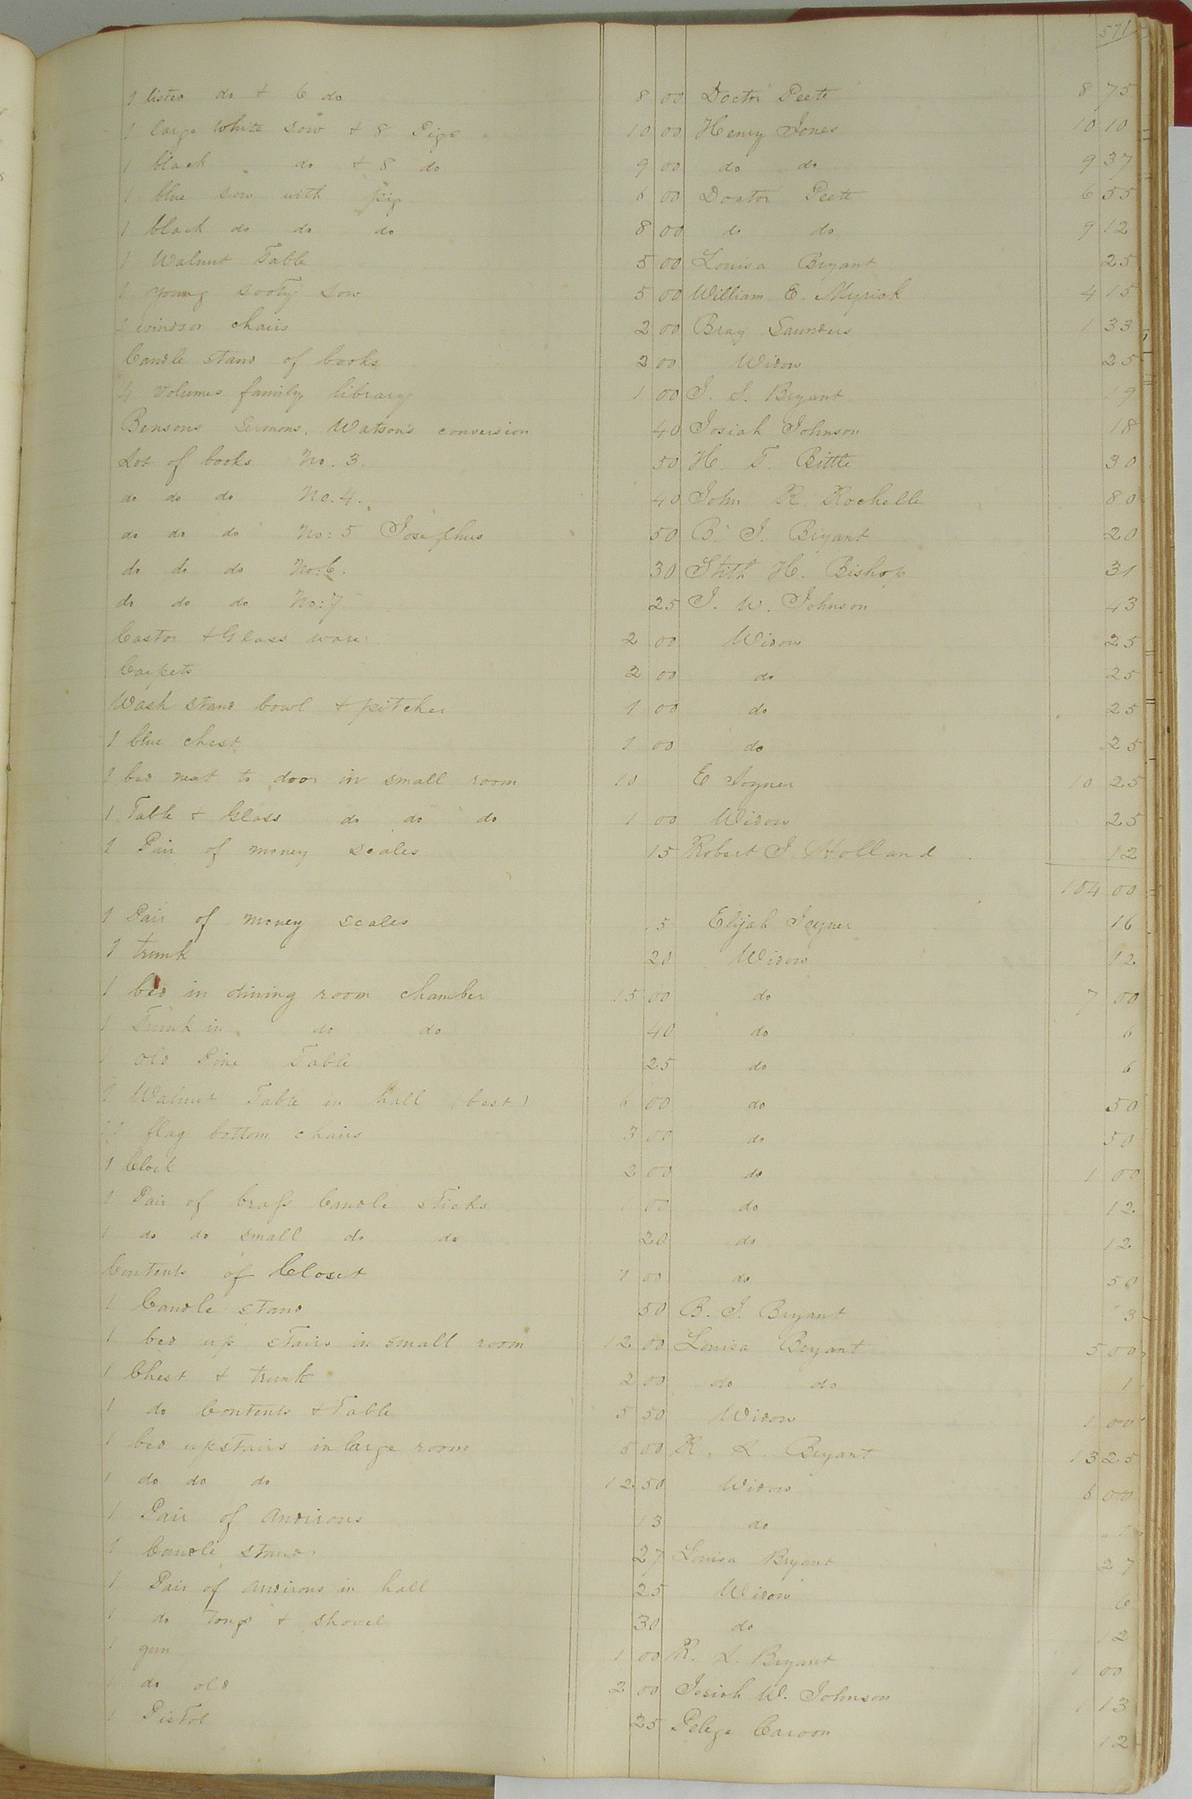 571
1 listed do + 6 do 8 00 Doctor Peete 8 75
1 large white sow + 8 Pigs 10 00 Henry Jones 10 10
1 black do + 8 do 9 00 do do 9 37
1 blue sow with pig 6 00 Doctor Peete 6 55
1 black do do do 8 00 do do 9 12
1 Walnut Table 5 00 Louisa Bryant 25
1 young sooty sow 5 00 William E. Myrick 4 15
windsor chairs 2 00 Bray Saunders 1 33
Candle stand of books 2 00 Widow 25
4 volumes family library 1 00 J. J. Bryant 19
Bensons Sermons, Watson's conversion 40 Josiah Johnson 18
Lot of books No. 3. 50 H. T. Bittle 30
do do do No. 4. 40 John R. Rochelle 80
do do do No: 5 Josephus 50 B. J. Bryant 20
do do do No: 6. 30 Stith H. Bishop 31
do do do No: 7 25 J. W. Johnson 43
Castor + Glass ware 2 00 Widow 25
Carpets 2 00 do 25
Wash stand bowl + pitcher 1 00 do 25
1 blue chest 1 00 do 25
1 bed next to door in small room 10 E Joyner 10 25
1 Table + Glass do do do 1 00 Widow 25
1 Pair of money scales 15 Robert J. Holland 12
104 00
1 Pair of money scales 5 Elijah Joyner 16
1 trunk 20 Widow 12
1 bed in dining room chamber 15 00 do 7 00
1 Trunk in do do 40 do 6
1 old Pine Table 25 do 6
1 Walnut Table in hall (best) 6 00 do 50
flag bottom chairs 3 00 do 50
1 Clock 2 00 do 1 00
1 Pair of brass Candle sticks 00 do 12
1 do do small do do 20 do 12
Contents of Closet 1 00 do 50
1 Candle stand 50 B. J. Bryant 3
1 bed up stairs in small room 12 00 Louisa Bryant 5 00
1 Chest + trunk 2 00 do do 1
1 do Contents + Table 5 50 Widow 1 00
1 bed upstairs in large room 6 00 R. L. Bryant 13 25
1 do do do 12 50 Widow 5 00
1 Pair of Andirons 13 do
1 Candle stand 27 Louisa Bryant 27
1 Pair of andirons in hall 25 Widow 6
1 do tongs + shovel 30 do 12
1 gun 1 00 R. L. Bryant 1 00
1 do old 2 00 Josiah W. Johnson 1 13
1 Pistol 25 12